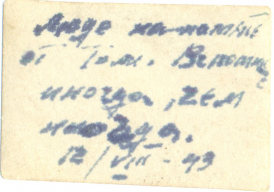 Люде на-память
от Томи. Вспомни
иногда, чем
никогда.
12/VIII-43